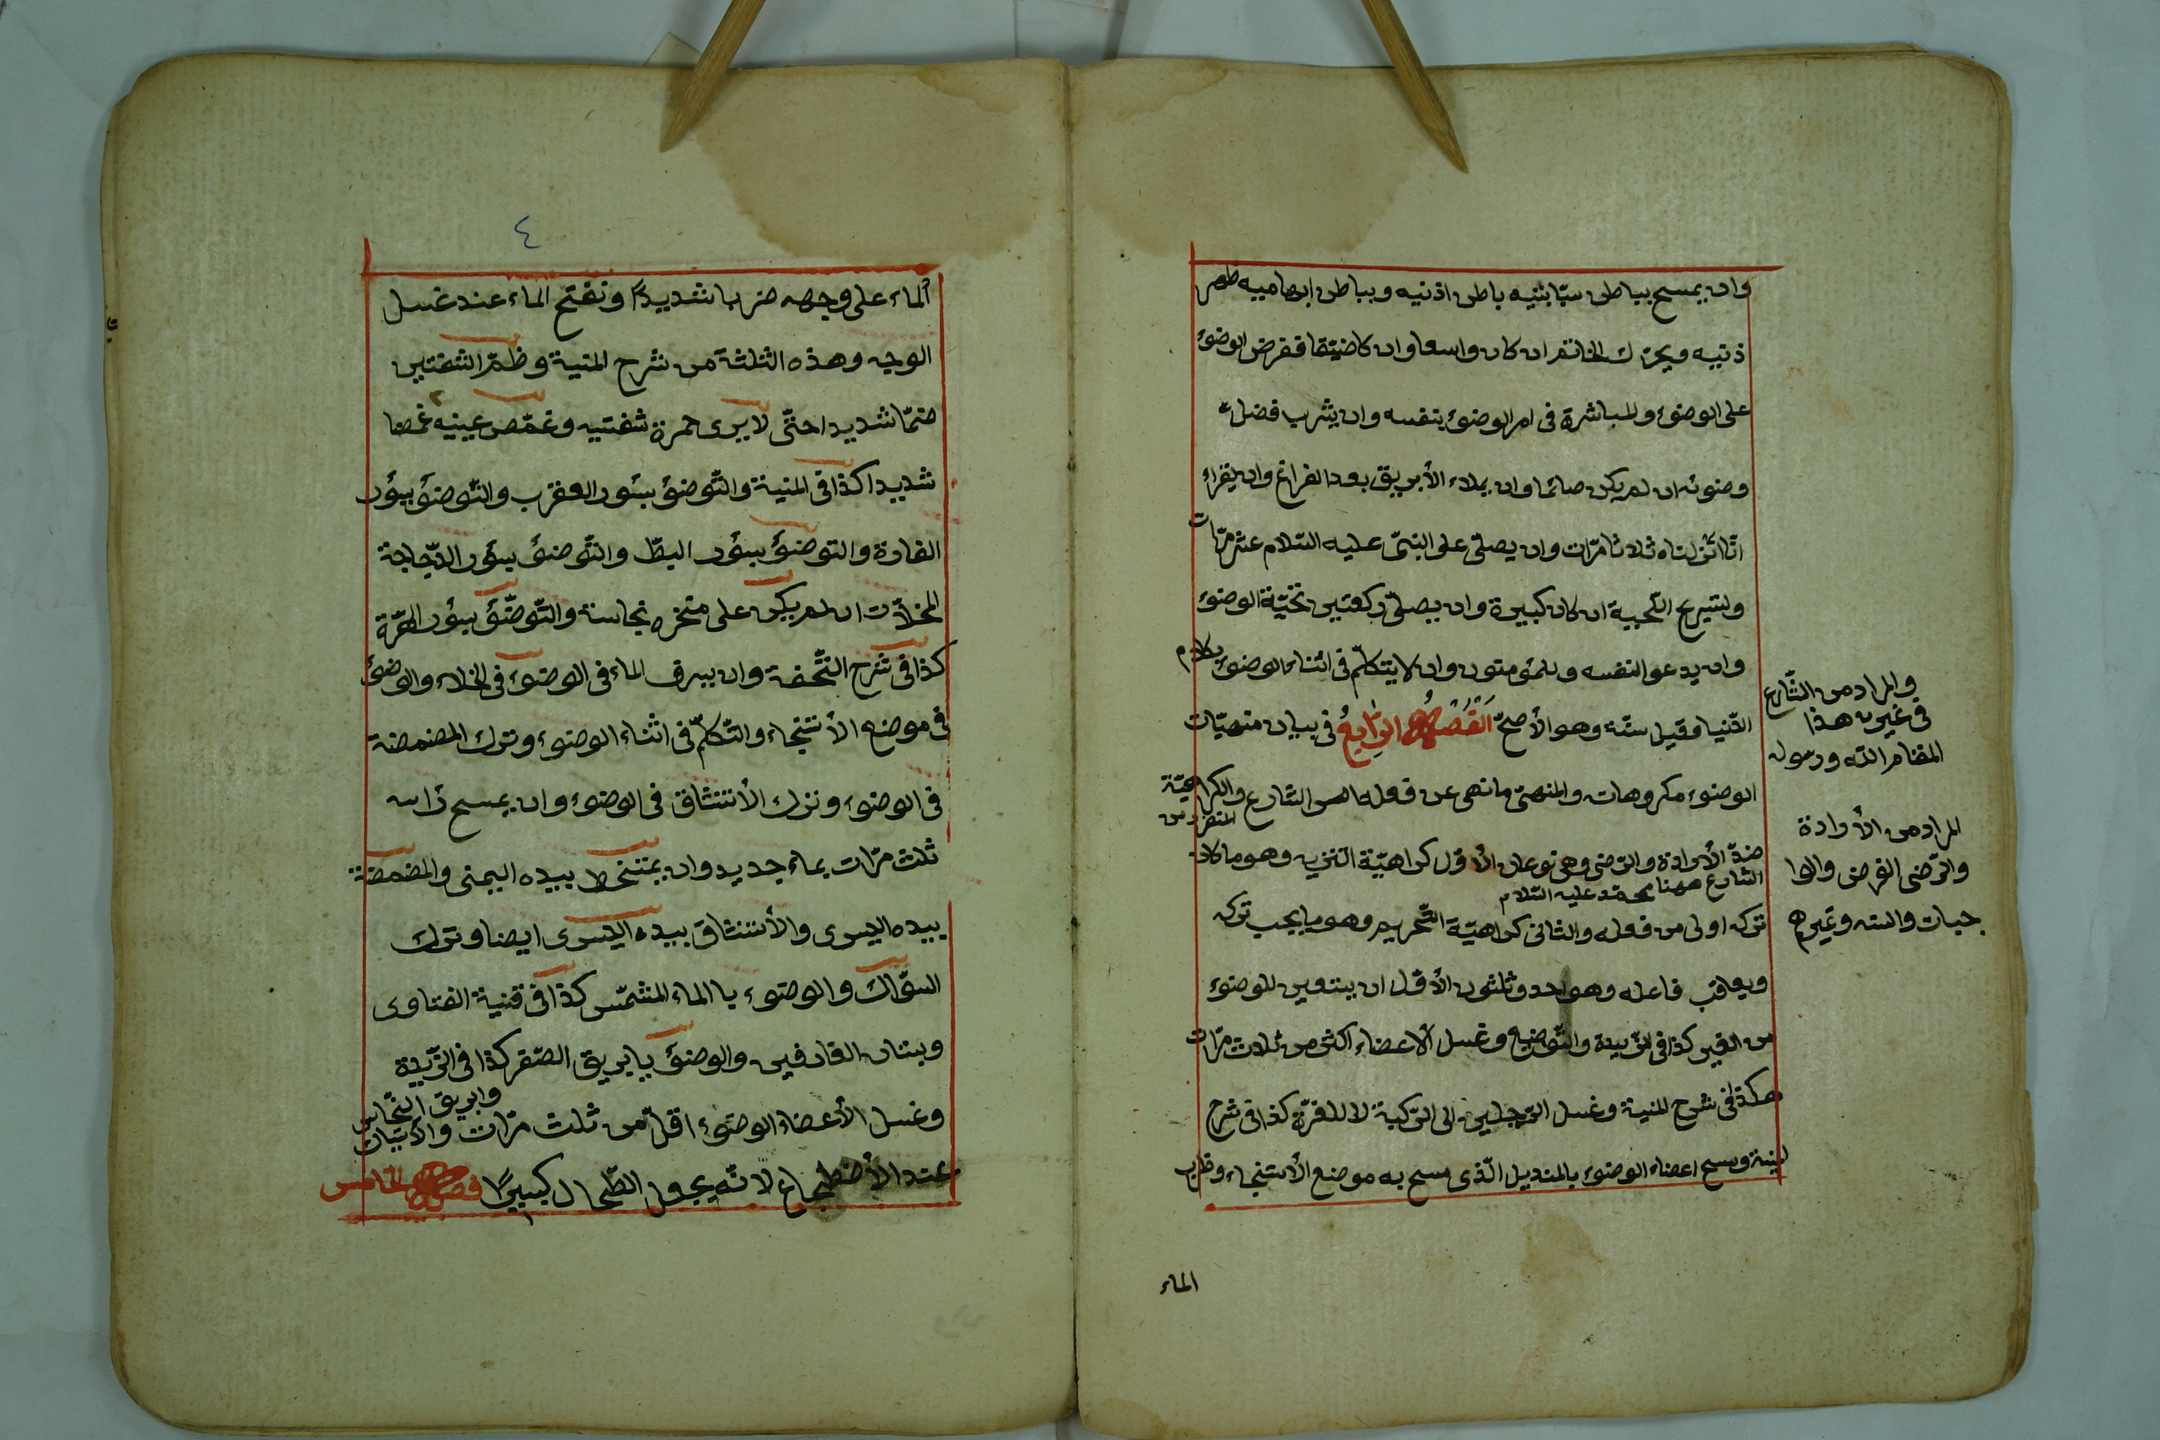 وان يمسح بباطن سبّابتيه باطن اذنيه وبباطن ابهاميه ظهر
ذنيه ويحرّك الخاتم ان كان واسعا وان كا ضيّقا ففرض الوضوء
على الوضوء والمباشرة فى امر الوضوء بنفسه وان يشرب فضل
وضوئه ان لم يكن صائما وان يملاء الأبريق بعد الفراغ وان يقراء
انّا انزلناه ثلاثا مرّات وان يصلّى على النبىّ عليه السّلام عشر مرّات
ولتسريح اللّحية ان كان كبيرة وان يصلّى ركعتين تحيّة الوضوء
وان يدعو النفسه وللمؤمنون وان لا يتكلّم فى اثناء الوضوء بكلام
الدّنيا وقيل سنّة وهو الأصحّ اَلْفَصْلُ الرّابِعُ فى بيان منهيّات
الوضوء مكروهات والمنهىّ ما نهى عن فعله الشّارع والكراهيّة
ضدّ الأرادة والرّضى وهى نوعان الأوّل كراهيّة التنزيه وهو ما كان
الشّارع ههنا محمّد عليه السّلام
تركه اولى من فعله والثانى كراهيّة التّحريم وهو ما يجب تركه
ويعاقب فاعله وهو احد وثلثون الأوّل ان
من الغير كذا فى الزّبدة وغسل الأعضاء اكثر من ثلاث مرّات
هكذا فى شرح المنية وغسل الرّجلين الى الرّكبة لا للغرّة كذا فى شرح
لمنية ومسح اعضاء الوضوء بالمنديل الّذى مسح به موضع الأستنجاء وضرب
والمراد من الشّارع
فى غيرى هذا
المقام اللّه ورسوله
المراد من الأرادة
والرّضى الفرض والوا
جبات والسنه وغيرهم
الماء
٤
الماء على وجهه ضربا شديدا ونفتح الماء عند غسل
الوجه وهذه الثلثة من شرح المنية وظمّ الشفتين
ضمّا شديدا حتّى لا يرى حمرة شفتيه وغمّص عينيه غمصا
شديدا كذا فى المنية والتّوضئ بسئور العقرب والتّوضئ بسؤر
الفارة والتوضئ بسؤر البطّ والتّوضئ بسؤر الدّجاجة
المخلاّت ان لم يكن على منخره نجاسة والتّوضّئ بسؤر الهرّة
كذا فى شرح التّحفة وان يبرق الماء فى الوضوء فى الخلاء والوضئ
فى موضع الأستنجاء والتّكلّم فى اثناء الوضوء وترك المضمضة
فى الوضوء وترك الأستنشاق فى الوضوء وان يمسح رأسه
ثلث مرّات بماء جديد وان يمتخط بيده اليمنى والمضمضة
بيده اليسرى والأستنشاق بيده اليسرى ايضا وترك
السّواك والوضوء با الماء المشمّس كذا فى قنية الفتاوى
والوضئ بابريق الصّفر كذا فى الزّبدة
وابريق النّحاس
وغسل الأعضاء الوضوء اقلّ من ثلث مرّات
عند الأضطجاع لانّه يجعل الطّحال كبيرًا فصل الخامس